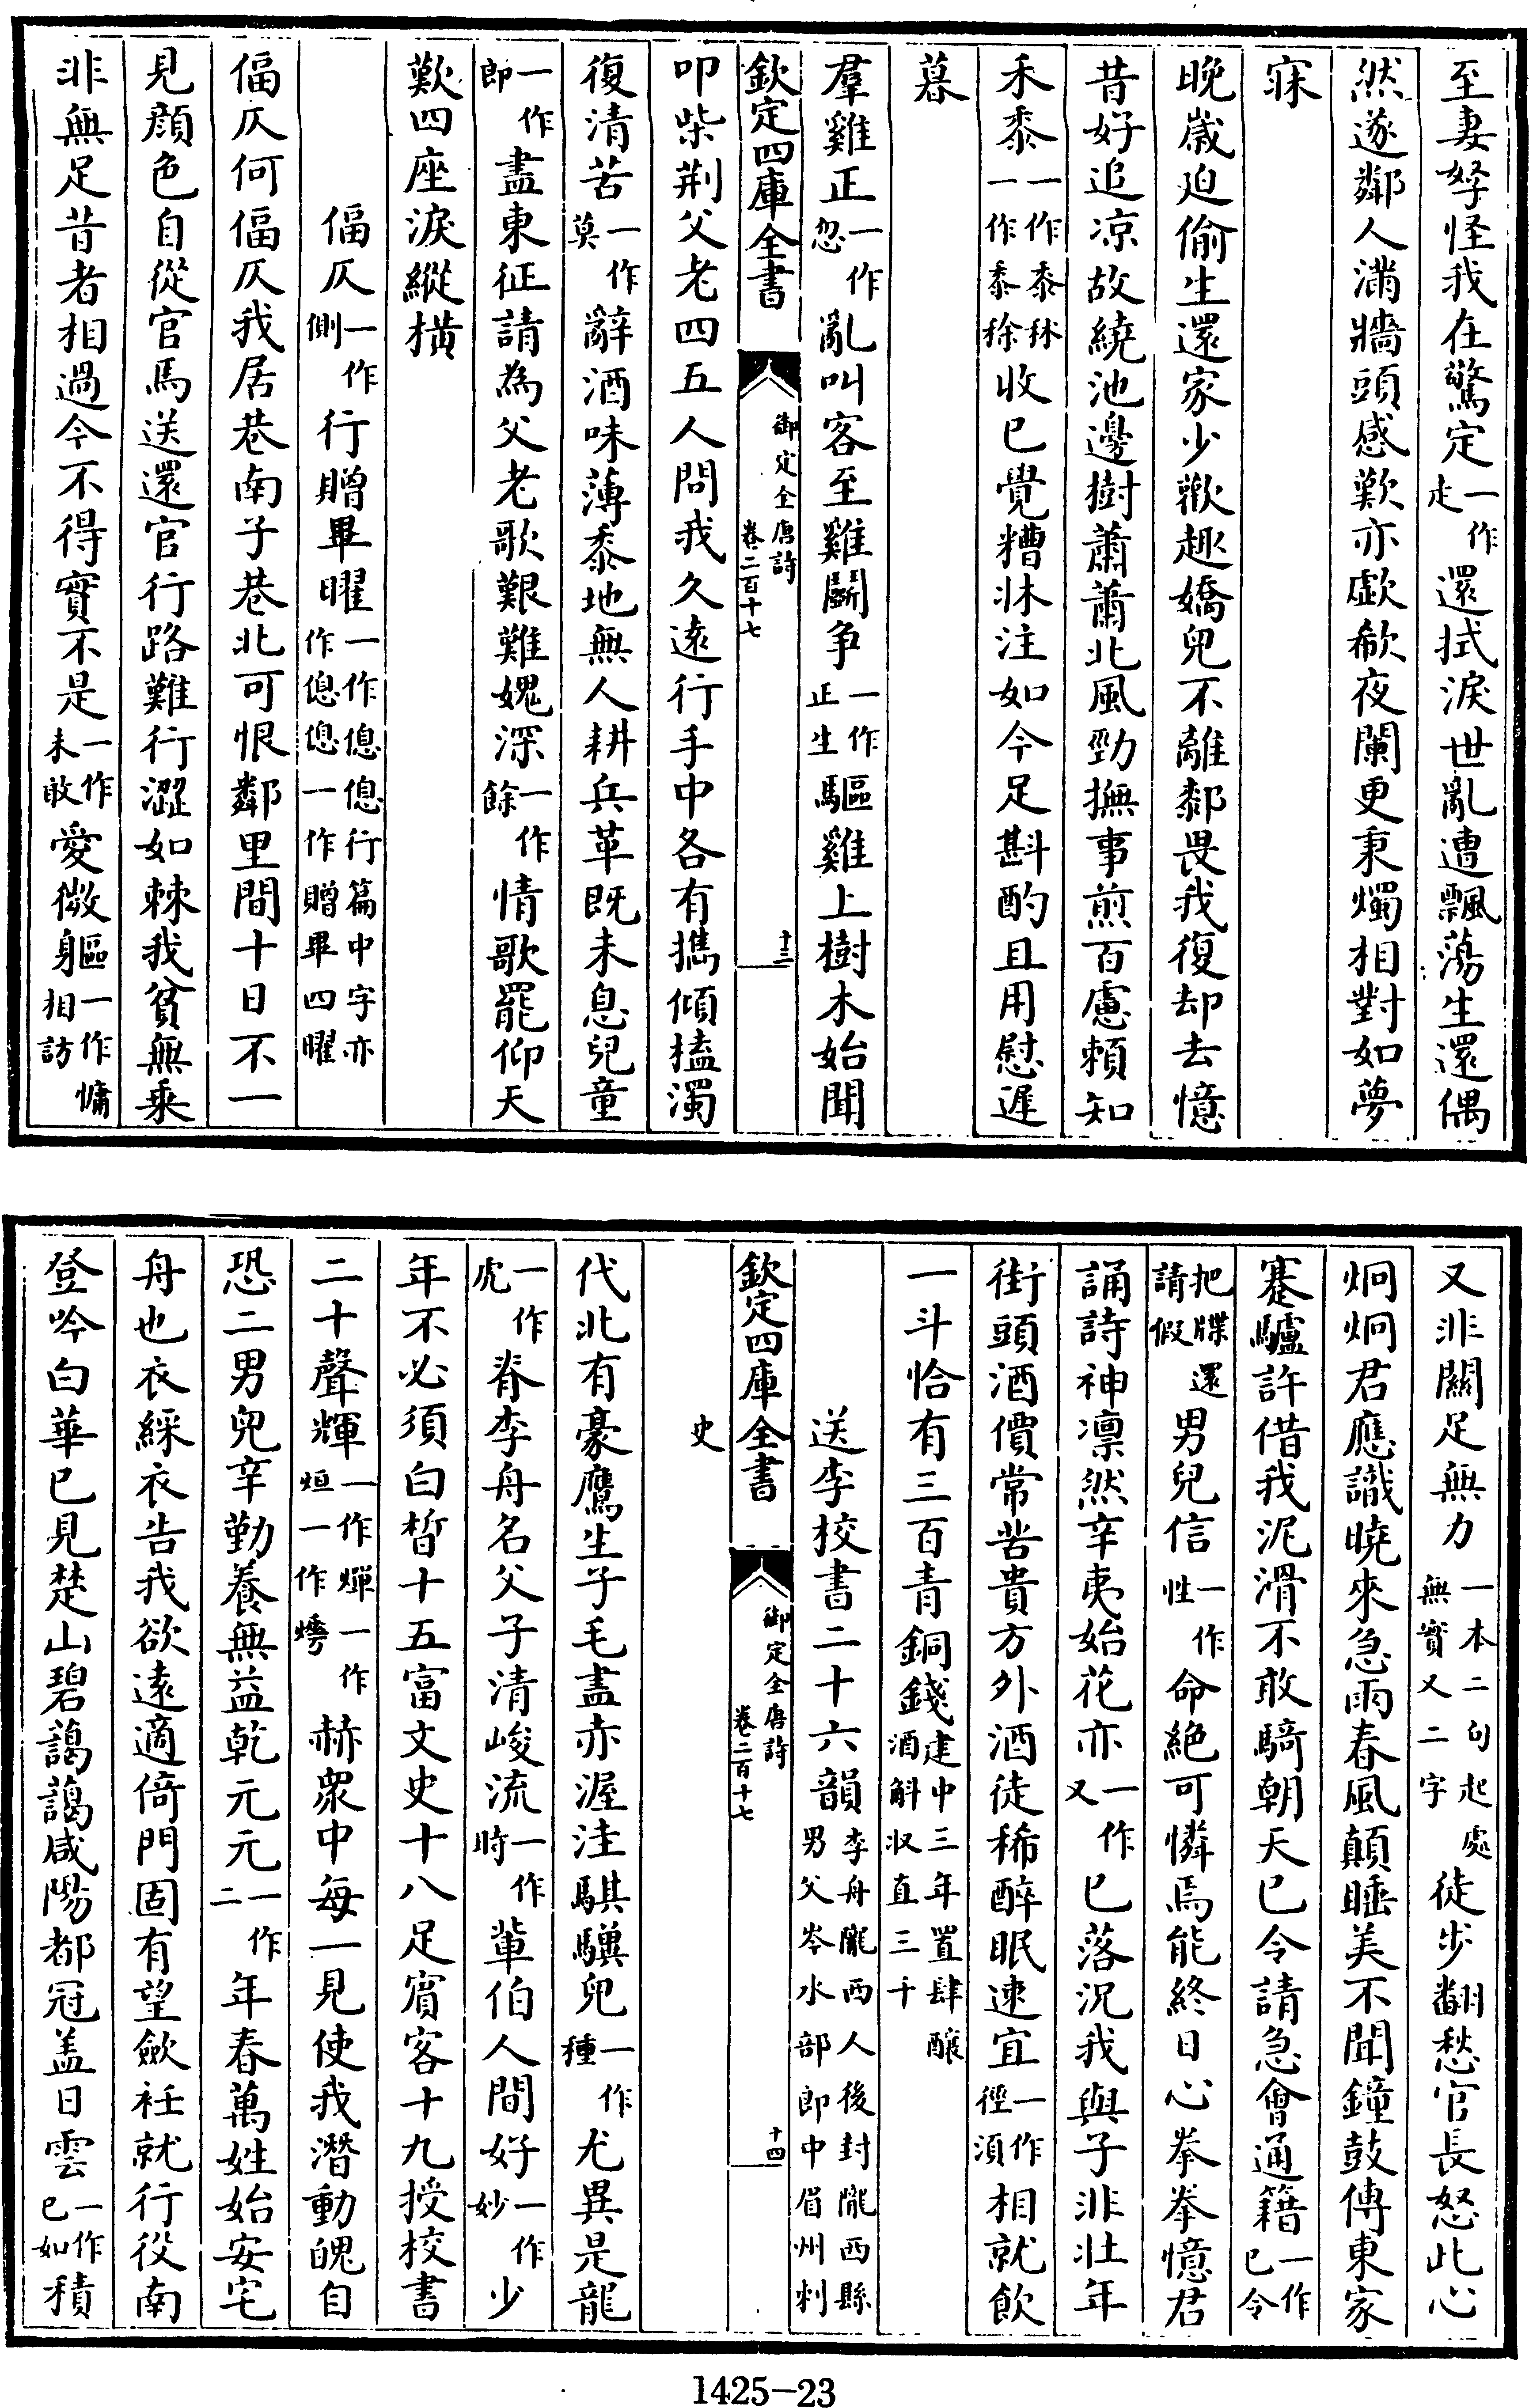 至妻孥怪我在驚定一作走還拭淚世亂遭飄蕩生還偶
然遂鄰人滿牆頭感歎亦歔欷夜闌更秉燭相對如夢
寐
晚歲迫偷生還家少歡趣嬌兒不離䣛畏我復却去憶
昔好追凉故繞池邊樹蕭蕭北風勁撫事煎百慮賴知
禾黍一作黍秫一作黍稌收已覺糟牀注如今足斟酌且用慰遲
暮
羣雞正一作忽亂叫客至雞鬭争一作正生驅雞上樹木始聞
欽定四庫全書
御定全唐詩
卷二百十七
十三
叩柴荆父老四五人問我久遠行手中各有攜傾榼濁
復清苦一作莫辭酒味薄黍地無人耕兵革既未息兒童
一作郎盡東征請為父老歌艱難媿深一作餘情歌罷仰天
歎四座淚縱横
偪仄一作側行贈畢曜一作偪偪行篇中字亦作偪偪一作贈畢四曜
偪仄何偪仄我居巷南子巷北可恨鄰里間十日不一
見顔色自從官馬送還官行路難行澀如棘我貧無乘
非無足昔者相過今不得實不是一作未敢愛微軀一作慵相訪
又非關足無力一本二句起處無實又二字徒步翻愁官長怒此心
炯炯君應識曉來急雨春風顛睡美不聞鐘鼓傳東家
蹇驢許借我泥滑不敢騎朝天已令請急會通籍一作已令
把牒還請假男兒信一作性命絶可憐焉能終日心拳拳憶君
誦詩神凛然辛夷始花亦一作又已落況我與子非壯年
街頭酒價常苦貴方外酒徒稀醉眠速宜一作徑須相就飲
一斗恰有三百青銅錢建中三年置肆釀酒斛收直三千
送李校書二十六韻李舟隴西人後封隴西縣男父岑水部郎中眉州刺
史
欽定四庫全書
御定全唐詩
卷二百十七
十四
代北有豪鷹生子毛盡赤渥洼騏驥兒一作種尤異是龍
一作虎脊李舟名父子清峻流一作時輩伯人間好一作妙少
年不必須白晳十五富文史十八足賓客十九授校書
二十聲輝一作燀一作烜一作㷸赫衆中每一見使我潛動魄自
恐二男兒辛勤養無益乾元元一作二年春萬姓始安宅
舟也衣綵衣告我欲遠適倚門固有望斂衽就行役南
登吟白華已見楚山碧藹藹咸陽都冠盖日雲一作已如積
1425-23